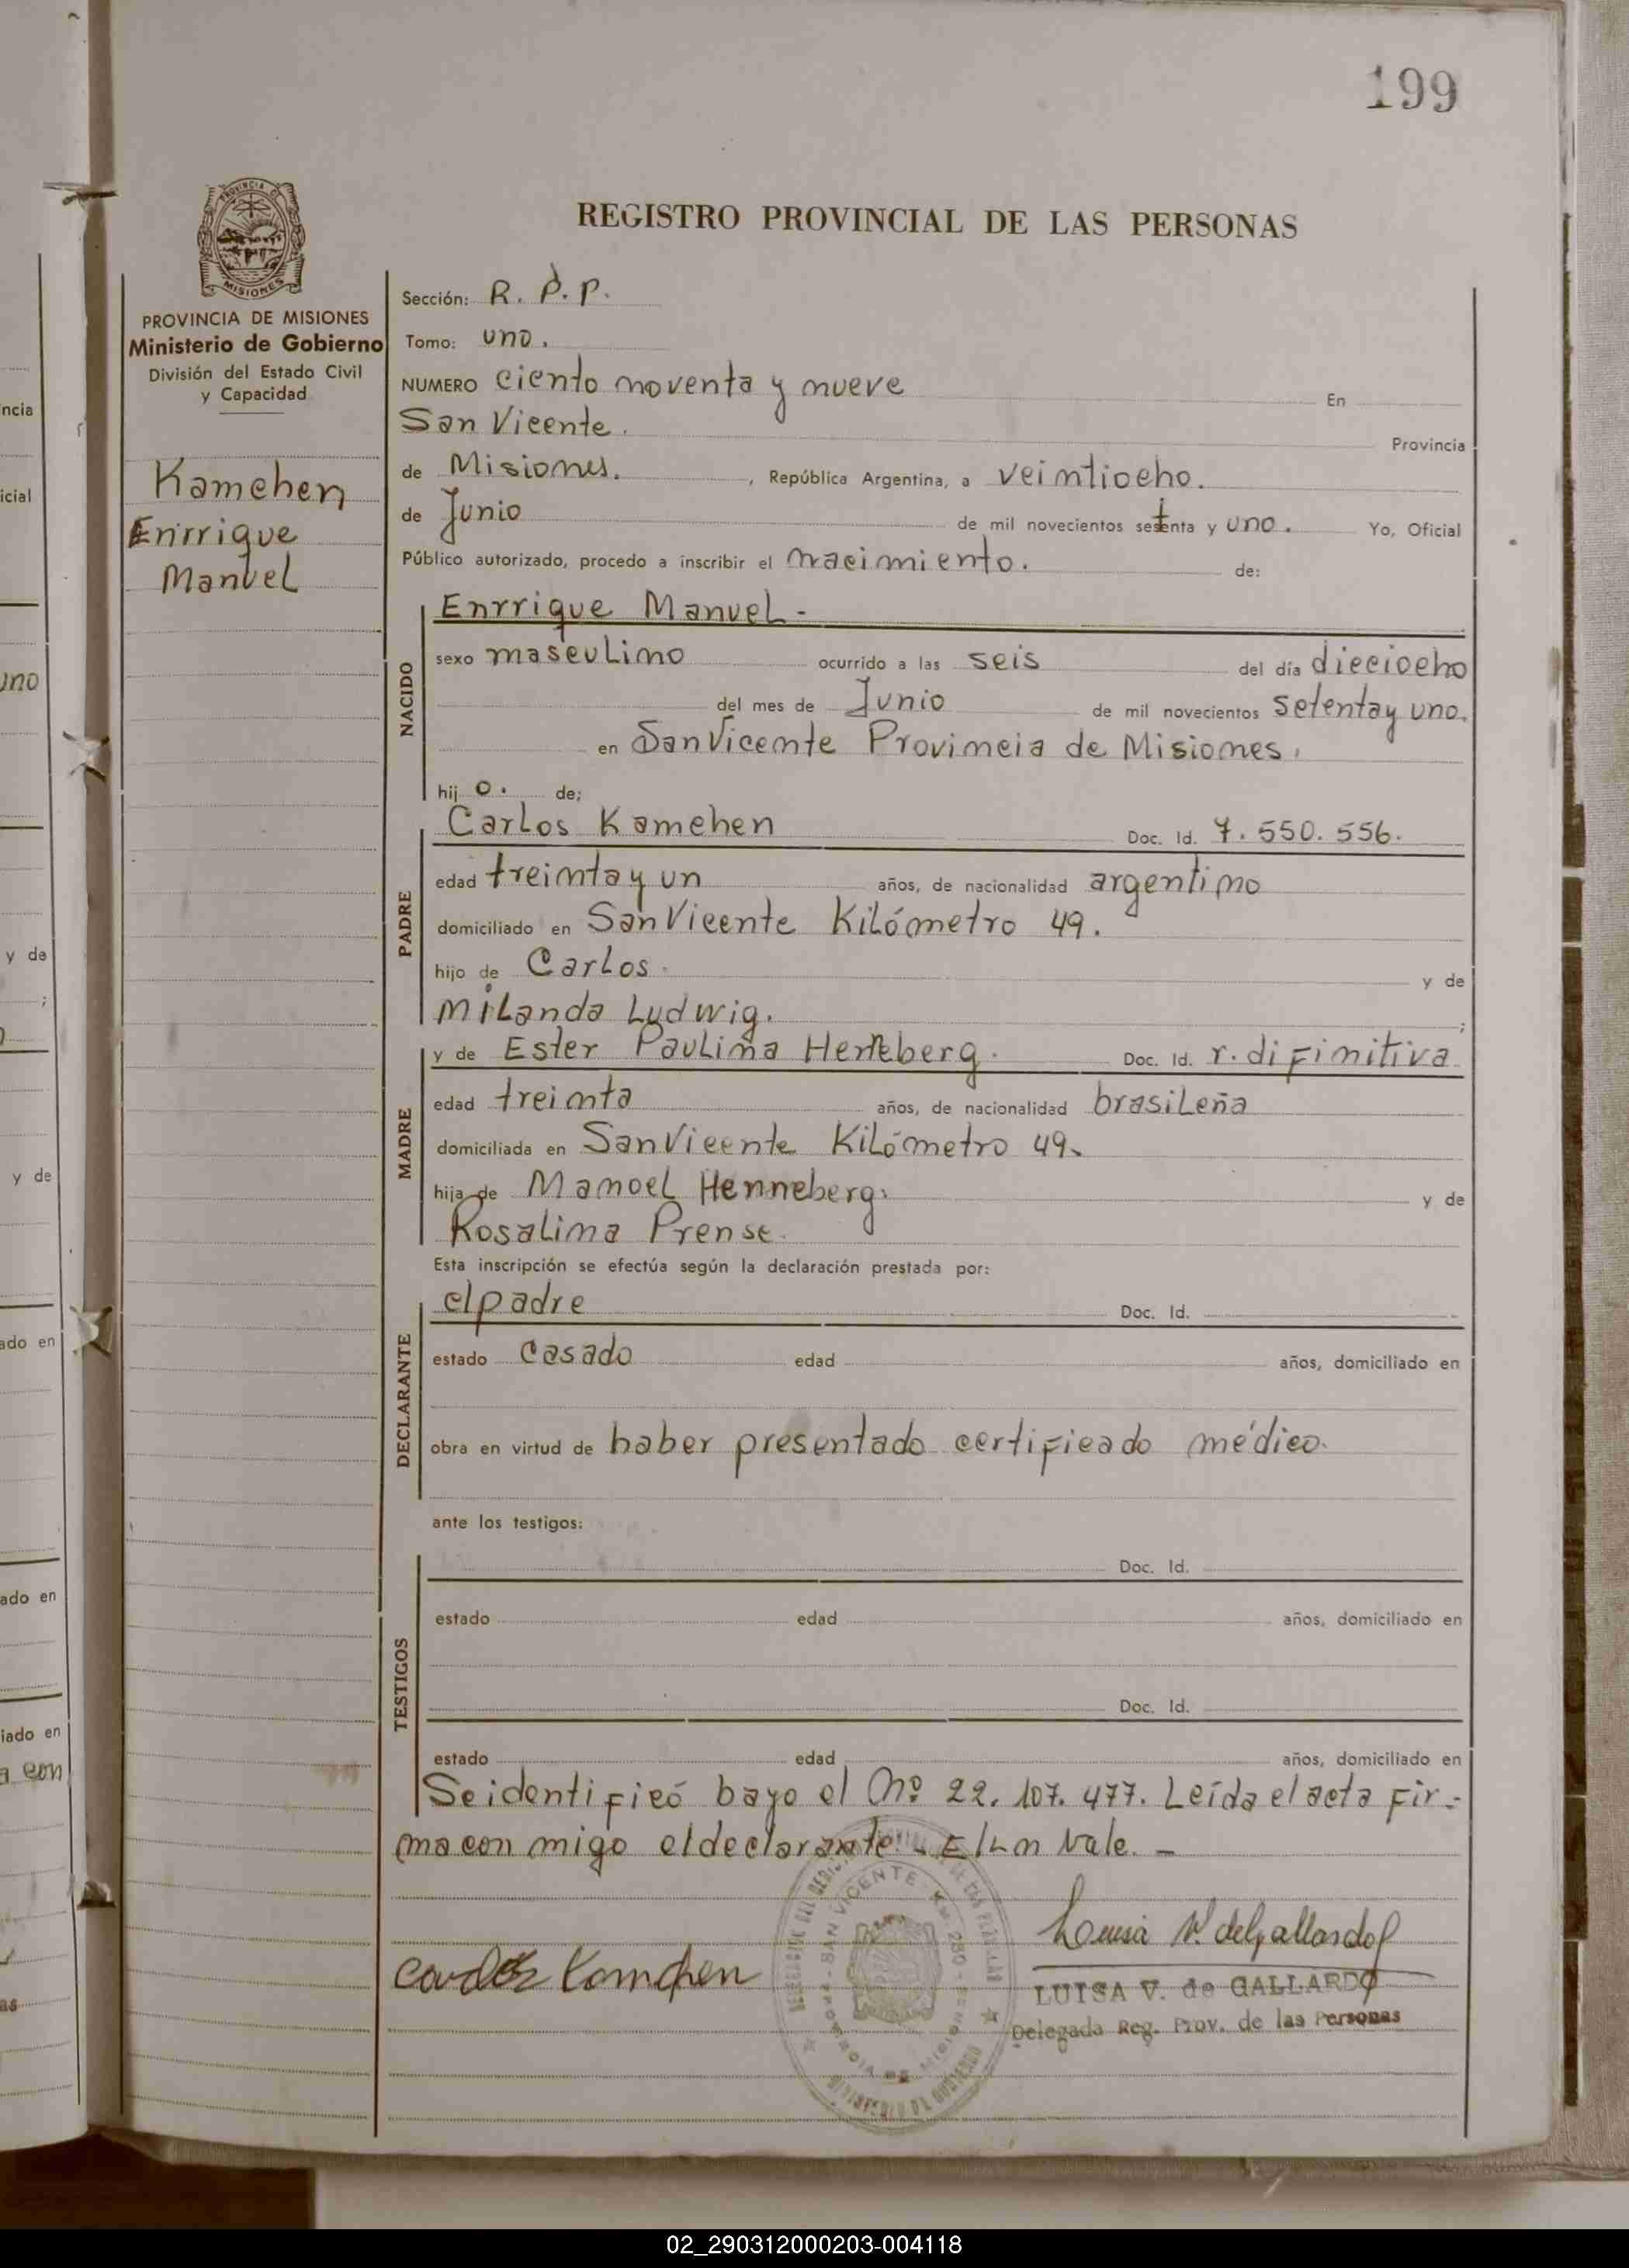 199
REGISTRO PROVINCIAL DE LAS PERSONAS
PROVINCIA DE MISIONES
Ministerio de Gobierno
División del Estado Civil
y Capacidad
Kamchen
Enrrique
Manuel
Sección: R. P. P.
Tomo: uno.
NUMERO ciento noventa y nueve En
San Vicente. Provincia
de Misiones. , República Argentina, a veintiocho.
de Junio de mil novecientos setenta y uno. Yo, Oficial
Público autorizado, procedo a inscribir el nacimiento. de:
NACIDO
Enrrique Manuel -
sexo masculino ocurrido a las seis del día dieciocho
del mes de Junio de mil novecientos setenta y uno.
en San Vicente Provincia de Misiones.
hij o. de;
PADRE
Carlos Kamchen Doc. Id. 7.550.556.
edad treinta y un años, de nacionalidad argentino
domiciliado en San Vicente Kilómetro 49.
hijo de Carlos. y de
Milanda Ludwig. ;
MADRE
y de Ester Paulina Henneberg. Doc. Id. r. difinitiva
edad treinta años, de nacionalidad brasileña
domiciliada en San Vicente Kilómetro 49.
hija de Manoel Henneberg. y de
Rosalina Prense.
Esta inscripción se efectúa según la declaración prestada por:
DECLARANTE
el padre Doc. Id.
estado casado edad años, domiciliado en
obra en virtud de haber presentado certificado médico.
ante los testigos:
TESTIGOS
Doc. Id.
estado edad años, domiciliado en
Doc. Id.
estado edad años, domiciliado en
Se identificó bayo el Nº 22.107.477. Leída el acta fir-
ma con migo el declarante. - E/L n Vale. -
Carlos Kamchen
Luisa V. de Gallardo
LUISA V. de GALLARDO
Delegada Reg. Prov. de las Personas
SAN VICENTE - KM. 280
PROVINCIA DE MISIONES
MINISTERIO DE GOBIERNO
ncia
icial
uno
y de
;
y de
ado en
ado en
iado en
a con
as
02_290312000203-004118